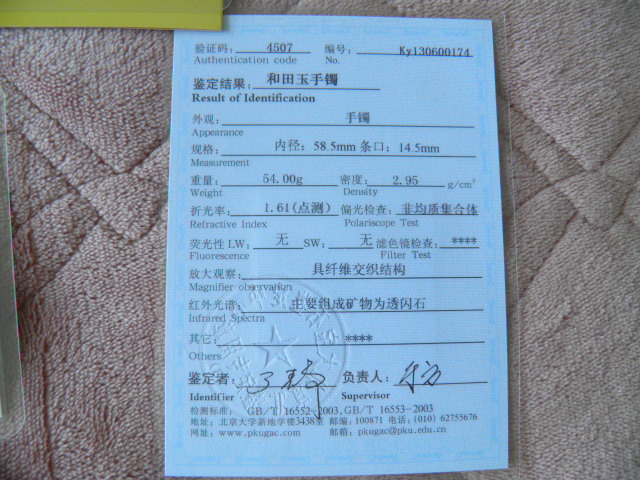 验证码: 4507 编号: Ky130600174
Authentication code No.
鉴定结果: 和田玉手镯
Result of Identification
外观: 手镯
Appearance
规格: 内径: 58.5mm 条口: 14.5mm
Measurement
重量: 54.00g 密度: 2.95 g/cm³
Weight Density
折光率: 1.61(点测) 偏光检查: 非均质集合体
Refractive Index Polariscope Test
荧光性 LW: 无 SW: 无 滤色镜检查: ****
Fluorescence Filter Test
放大观察: 具纤维交织结构
Magnifier observation
红外光谱: 主要组成矿物为透闪石
Infrared Spectra
其它: ****
Others
鉴定者: 负责人:
Identifier Supervisor
检测标准: GB/T 16552-2003, GB/T 16553-2003
地址: 北京大学新地学楼3438室 邮编: 100871 电话: (010) 62755676
网址: www.pkugac.com 邮箱: pkugac@pku.edu.cn